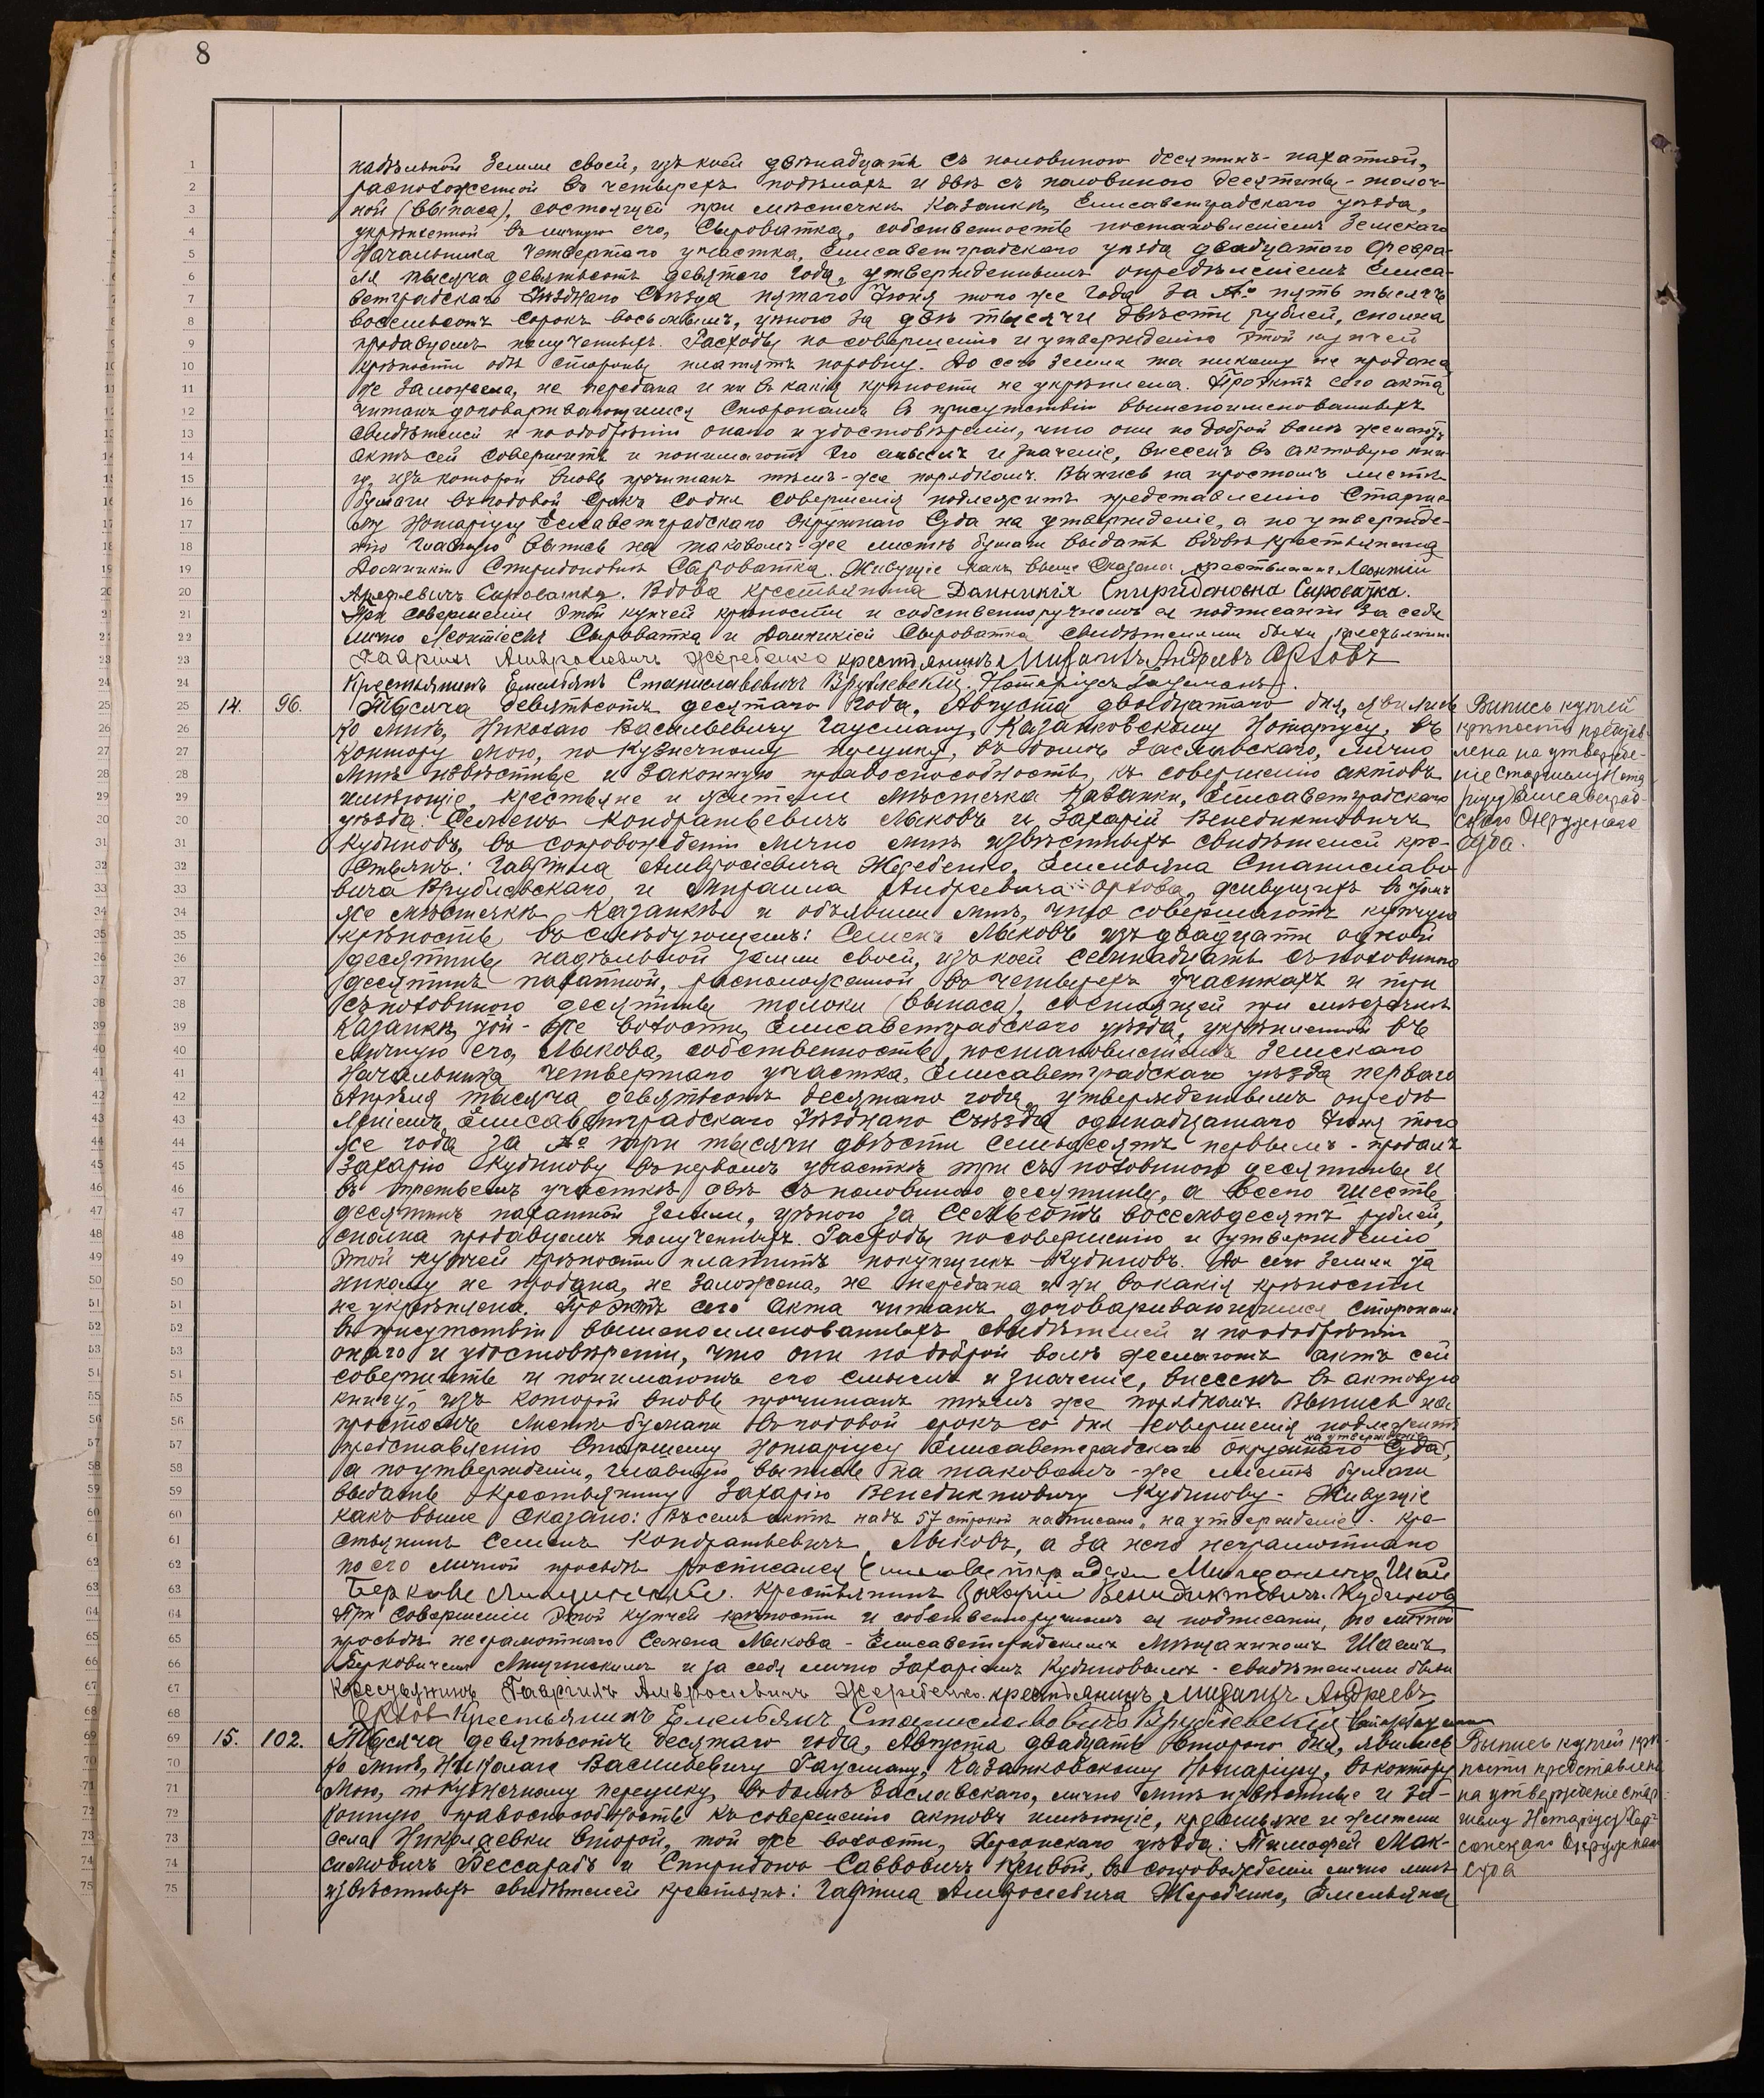 8
надѣльной земли своей, изъ коей двѣнадцать съ половиною десятинъ - пахатной,
расположенной въ четырехъ подѣлахъ и двѣ съ половиною десятины - толоч-
ной (выпаса), состоящей при мѣстечкѣ Казанкѣ, Елисаветградскаго уѣзда,
укрѣпленной въ личную его, Сыроватка, собственность постановленіемъ Земскаго
Начальника Четвертаго участка, Елисаветградскаго уѣзда двадцатого Февра-
ля тысяча девятьсотъ девятого года, утвержденнымъ опредѣленіемъ Елиса-
ветградскаго Уѣзднаго Съѣзда пятаго Іюня того же года за № пять тысячъ
восемьсотъ сорокъ восьмымъ, цѣною за двѣ тысячи двѣсти рублей, сполна
продавцомъ полученныхъ. Расходы по совершенію и утвержденію этой купчей
крѣпости обѣ стороны платятъ поровну. До сего земля та никому не продана
не заложена, не передана и ни въ какія крѣпости не укрѣплена. Проэктъ сего акта
читанъ договаривающимся сторонамъ въ присутствіи вышепоименованныхъ
свидѣтелей и по одобреніи онаго и удостовѣреніи, что они по доброй волѣ желаютъ
актъ сей совершить и понимаютъ его смыслъ и значеніе, внесенъ въ актовую кни-
гу, изъ которой вновь прочитанъ тѣмъ-же порядкомъ. Выпись на простомъ листѣ
бумаги въ годовой срокъ со дня совершенія подлежитъ представленію Старше-
му Нотаріусу Елисаветградскаго Окружнаго Суда на утвержденіе, а по утвержде-
нію главную выпись на таковомъ-же листѣ бумаги выдать вдовѣ крестьянина
Домникіи Спиридоновнѣ Сыроватка. Живущіе какъ выше сказано: крестьянинъ Леонтій
Сыроватка. Вдова крестьянина Данникія Спиридоновна Сыроватка.
При совершеніи этой купчей крѣпости и собственноручномъ ея подписаніи за себя
лично Леонтіемъ Сыроватка и Домникіей Сыроватка свидѣтелями были крестьянинъ
Гавріилъ Амвросіевичъ Жеребенко крестьянинъ Михаилъ Андреевъ Орховъ
Крестьянинъ Емельянъ Станиславовичъ Врублевскій. Нотаріусъ Гаусманъ.
14. 96. Тысяча девятьсотъ десятаго года, Августа двадцатаго дня, явились
ко мнѣ, Николаю Васильевичу Гаусману, Казанковскому Нотаріусу, въ
контору мою, по Кузнечному переулку, въ домѣ Заславскаго, лично
мнѣ извѣстные и законную правоспособность къ совершенію актовъ
имѣющіе, крестьяне и жители мѣстечка Казанки, Елисаветградскаго
уѣзда: Семенъ Кондратьевичъ Лыковъ и Захарій Венедиктовичъ
Кудиновъ, въ сопровожденіи лично мнѣ извѣстныхъ свидѣтелей кре-
стьянъ: Гавріила Амвросіевича Жеребенко, Емельяна Станиславо-
вича Врублевскаго и Михаила Андреевича Орхова, живущихъ въ томъ
же мѣстечкѣ Казанкѣ и объявили мнѣ, что совершаютъ купчую
крѣпость въ слѣдующемъ: Семенъ Лыковъ изъ двадцати одной
десятины надѣльной земли своей, изъ коей семнадцать съ половиною
десятинъ пахатной, расположенной въ четырехъ участкахъ и три
съ половиною десятины толоки (выпаса), состоящей при мѣстечкѣ
Казанкѣ, той-же волости, Елисаветградскаго уѣзда, укрѣпленной въ
личную его, Лыкова, собственность, постановленіемъ Земскаго
Начальника четвертаго участка, Елисаветградскаго уѣзда перваго
Апрѣля тысяча девятьсотъ десятаго года, утвержденнымъ опредѣ-
леніемъ Елисаветградскаго Уѣзднаго Съѣзда одинадцатаго Іюня того
же года за № три тысячи двѣсти семьдесятъ первымъ - продалъ
Захарію Кудинову въ первомъ участкѣ три съ половиною десятины и
въ третьемъ участкѣ двѣ съ половиною десятины, а всего шесть
десятинъ пахатной земли, цѣною за семьсотъ восемьдесятъ рублей,
сполна продавцемъ полученныхъ. Расходы по совершенію и утвержденію
этой купчей крѣпости платитъ покупщикъ Кудиновъ. До сего земля та
никому не продана, не заложена, не передана и ни въ какія крѣпости
не укрѣплена. Проэктъ сего акта читанъ договаривающимся сторонамъ
въ присутствіи вышепоименованныхъ свидѣтелей и по одобреніи
онаго и удостовѣреніи, что они по доброй волѣ желаютъ актъ сей
совершить и понимаютъ его смыслъ и значеніе, внесенъ въ актовую
книгу, изъ которой вновь прочитанъ тѣмъ же порядкомъ. Выпись на
простомъ листѣ бумаги въ годовой срокъ со дня совершенія подлежитъ
на утвержденіе
представленію Старшему Нотаріусу Елисаветградскаго Окружнаго Суда,
а по утвержденіи, главную выпись на таковомъ-же листѣ бумаги
выдать крестьянину Захарію Венедиктовичу Кудинову. Живущіе
какъ выше сказано: Въ семъ актѣ надъ 57 строкой написано „на утвержденіе". Кре-
стьянинъ Семенъ Кондратьевичъ Лыковъ, а за него неграмотнаго
по его личной просьбѣ росписался Елисаветградскій Мѣщанинъ Шай
Берковъ. Крестьянинъ Захарій Венидиктовичъ Кудиновъ
При совершеніи этой купчей крѣпости и собственноручномъ ея подписаніи, по личной
просьбѣ неграмотнаго Семена Лыкова - Елисаветградскимъ Мѣщаниномъ Шаемъ
Берковичемъ и за себя лично Захаріемъ Кудиновымъ - свидѣтелями были
Крестьянинъ Гавріилъ Амвросіевичъ Жеребенко. крестьянинъ Михаилъ Андреевъ
Орхов Крестьянинъ Емельянъ Станиславовичъ Врублевскій Нотаріусъ Гаусманъ
15. 102. Тысяча девятьсотъ десятаго года, Августа двадцать второго дня, явились
ко мнѣ, Николаю Васильевичу Гаусману, Казанковскому Нотаріусу, въ контору
мою, по Кузнечному переулку, въ домѣ Заславскаго, лично мнѣ извѣстные и за-
конную правоспособность къ совершенію актовъ имѣющіе, крестьяне и жители
села Николаевки Второй, той же волости, Херсонскаго уѣзда: Тимофей Мак-
симовичъ Бессарабъ и Спиридонъ Саввовичъ Кривой, въ сопровожденіи лично мнѣ
извѣстныхъ свидѣтелей крестьянъ: Гавріила Амвросіевича Жеребенко, Емельяна
Выпись купчей
крѣпости представ-
лена на утвержде-
ніе Старшему Нота-
ріусу Елисаветград-
скаго Окружнаго
Суда.
Выпись купчей крѣ-
пости представлена
на утвержденіе Стар-
шему Нотаріусу Хер-
сонскаго Окружнаго
Суда